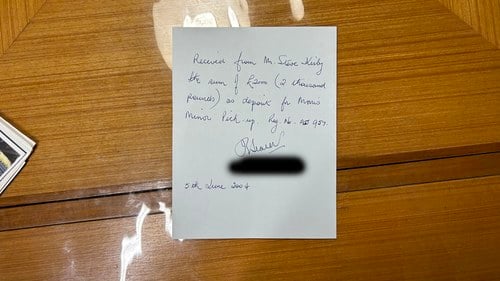 Received from Mr. Steve Kirby
the sum of £2000 (2 thousand
pounds) as deposit for Morris
Minor Pick-up. Reg. No.
5th June 2004